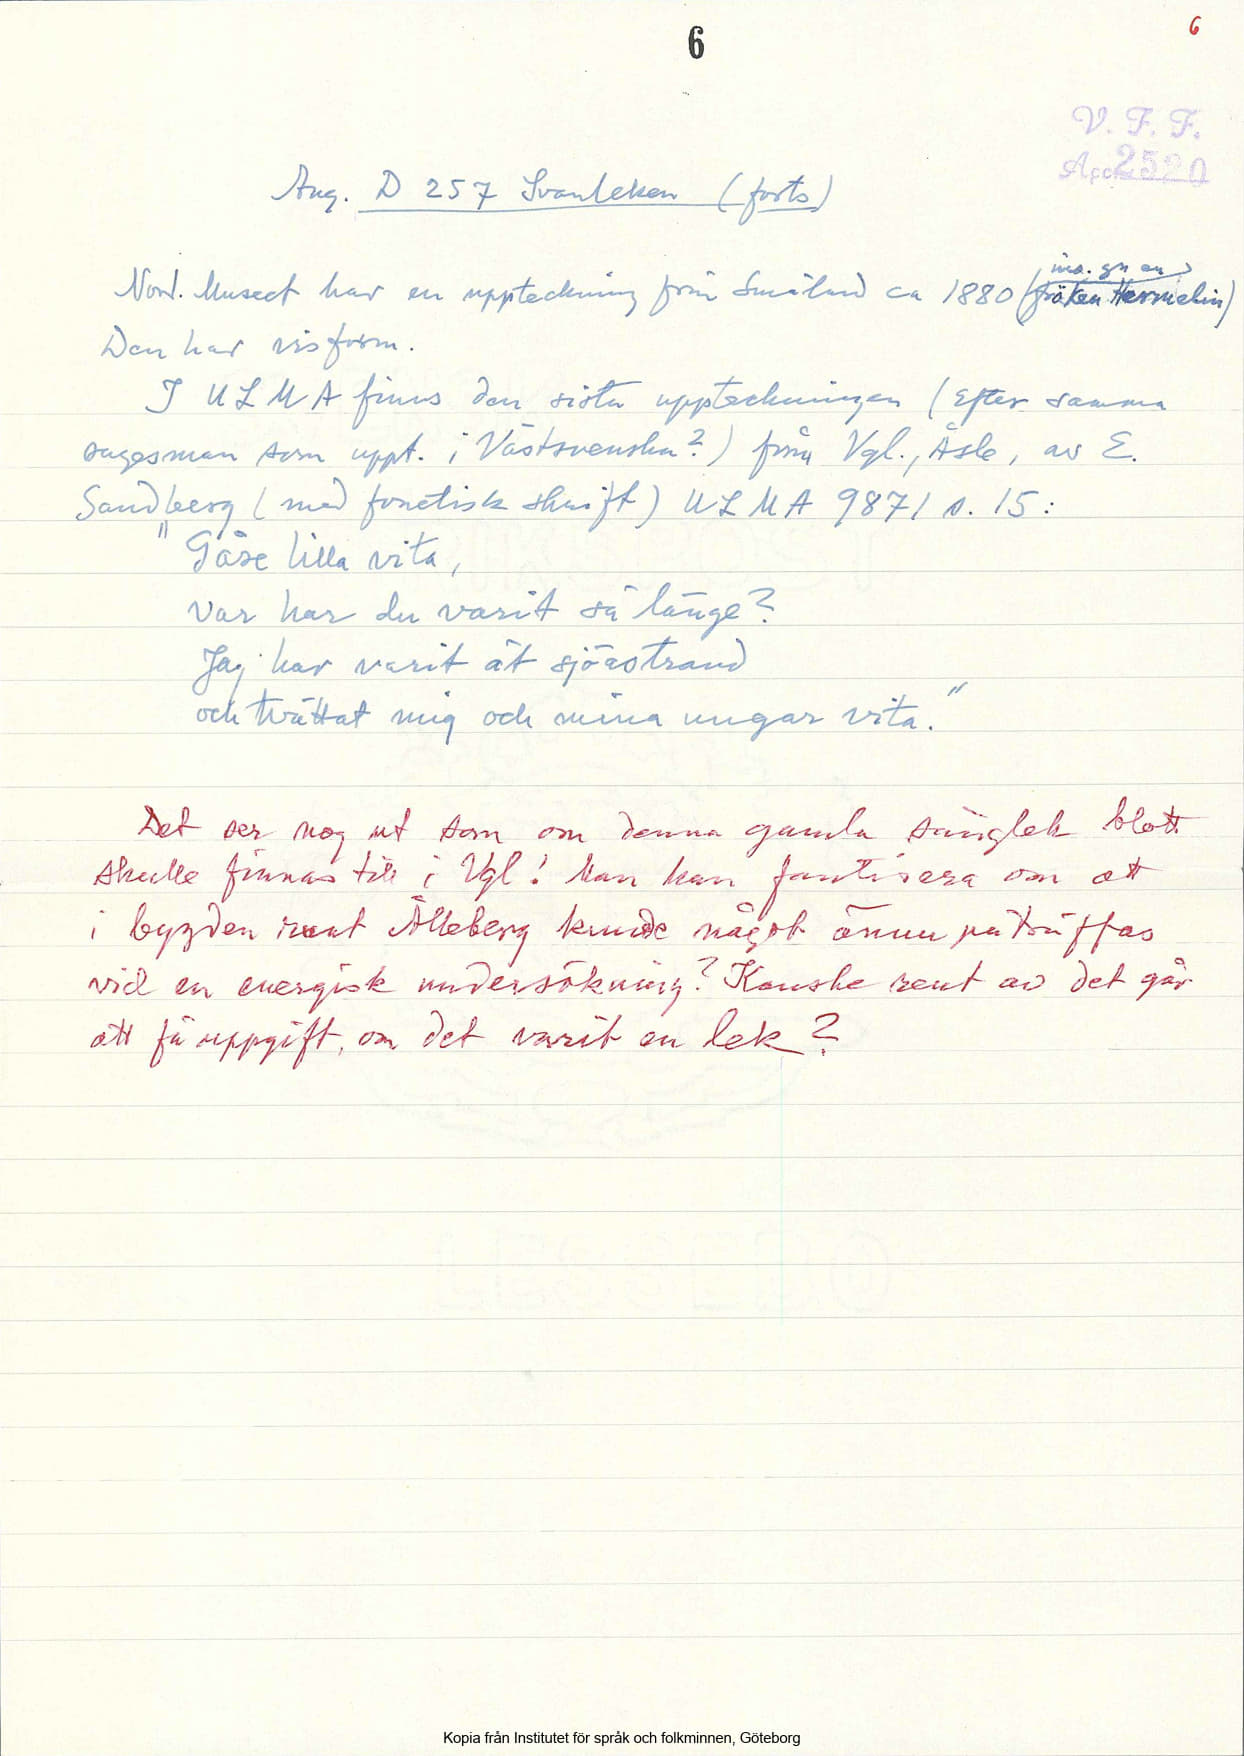 6
6
V. F. F.
Acc. 2520
Ang. D 257 Svanleken (forts)
ins. gn en
Nord. Museet har en uppteckning från Småland ca 1880 (fröken Hermelin)
Den har visform.
I ULMA finns den sista uppteckningen (Efter samma
sagesman som uppt. i Västsvenska?) från Vgl., Åsle, av E.
Sandberg (med fonetisk skrift) ULMA 9871 s. 15:
"Gåse lilla vita,
var har du varit så länge?
Jag har varit åt sjöastrand
och tvättat mig och mina ungar vita."
Det ser nog ut som om denna gamla sånglek blott
skulle finnas till i Vgl! Man kan fantisera om att
i bygden runt Ålleberg kunde något ännu påträffas
vid en energisk undersökning? Kanske rent av det går
att få uppgift, om det varit en lek?
Kopia från Institutet för språk och folkminnen, Göteborg